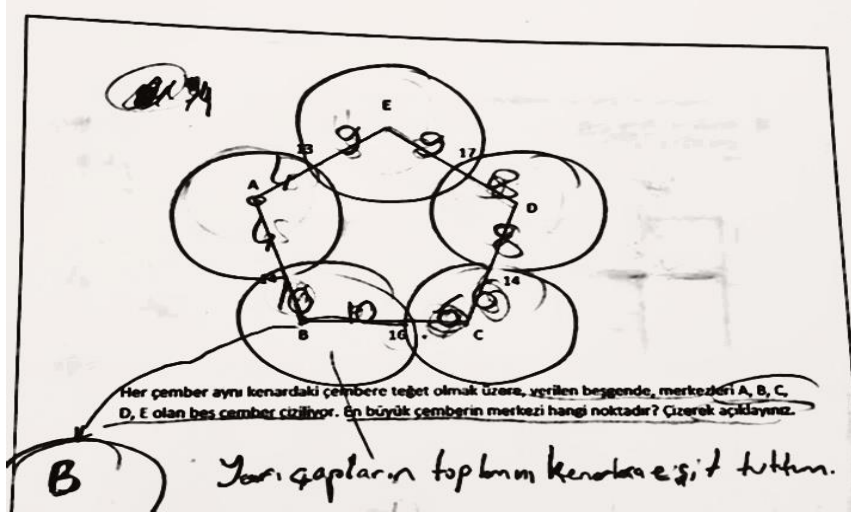 E
13
9
9
17
4
8
A
D
4
8
14
10
10
6
6
14
B
16
C
Her çember aynı kenardaki çembere teğet olmak üzere, verilen beşgende, merkezleri A, B, C,
D, E olan beş çember çiziliyor. En büyük çemberin merkezi hangi noktadır? Çizerek açıklayınız.
B
Yarı çapların toplamını kenarlara eşit tuttum.